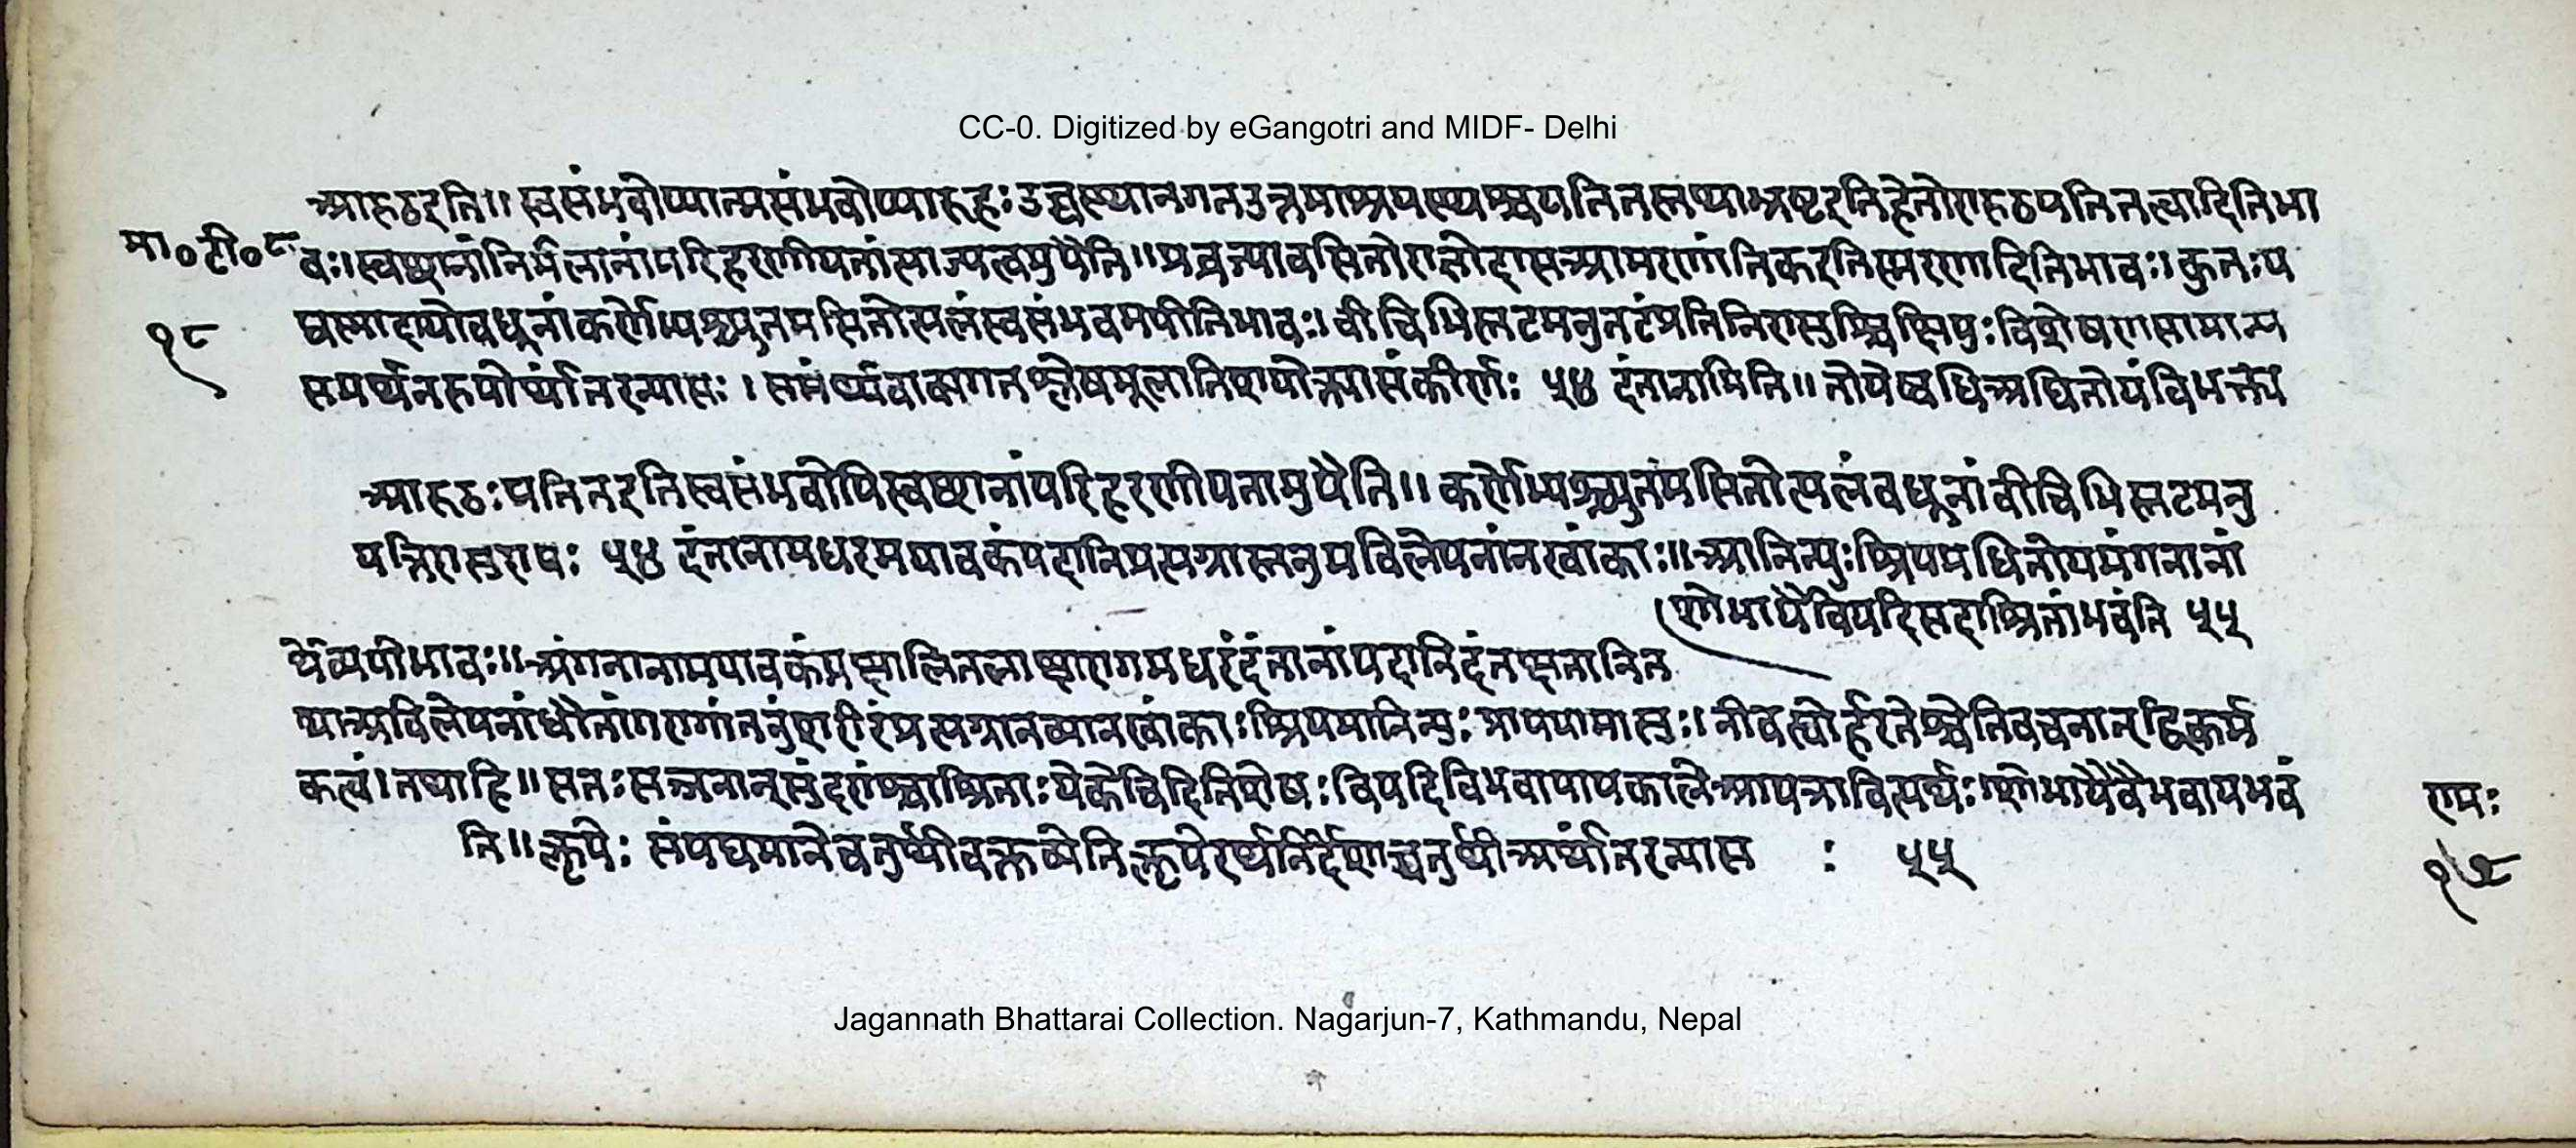 CC-0. Digitized by eGangotri and MIDF- Delhi
आरूढइति॥ स्वसंभवोप्यात्मसंभवोप्यारूहः उच्चस्थानगतउत्तमाश्रयस्थश्च पतितस्तथाभ्रष्टइतिहेतोरारूढपतितत्वादितिभा
मा॰टी॰८
वः।स्वच्छानांनिर्मलानांपरिहरणीयतांत्याज्यत्वमुपैति॥प्रव्रज्यावसितोराज्ञोदासआमरणांतिकइतिस्मरणादितिभावः।कुतःय
१८
द्यस्मादापोवधूनांकर्णेभ्यश्च्युतमसितोत्पलंस्वसंभवमपीतिभावः।वीचिभिस्तटमनुतटंप्रतिनिरासुश्चिक्षिपुःविशेषणसामान्य
समर्थनरूपोर्थांतरन्यासः। समर्थ्यवाक्यगतश्लेषमूलातिशयोक्त्यासंकीर्णः ५४ दंतानामिति॥ तोयेष्वधिअधितोयंविभक्त्य
आरूढःपतितइतिस्वसंभवोपिस्वच्छानांपरिहरणीयतामुपैति॥ कर्णेभ्यश्च्युतमसितोत्पलंवधूनांवीचिभिस्तटमनु
यन्निरासुरापः ५४ दंतानामधरमयावकंपदानिप्रत्यग्रास्तनुमविलेपनांनखांकाः॥आनिन्युःश्रियमधितोयमंगनानां
शोभायैविपदिसदाश्रितांभवंति ५५
र्थेव्ययीभावः॥अंगनानामयावकंप्रक्षालितलाक्षारागमधरंदंतानांपदानिदंतक्षतानित
थाअविलेपनांधौतांगरागांतनुंशरीरंप्रत्यग्रानव्यानखांकाःश्रियमानिन्युः प्रापयामासुः।नीवह्योर्हरतेश्चेतिवचनाद्द्विकर्म
कत्वं।तथाहि॥सतःसज्जनान्सुंदरांश्चाश्रिताःयेकेचिदितिशेषःविपदिविभवापायकालेआपन्नावित्यर्थःशोभायैवैभवायभवं
रामः
ति॥कॢपेः संपद्यमानेचतुर्थीवक्तव्येतिकॢपेरर्थनिर्देशाच्चतुर्थीअर्थांतरन्यास : ५५
१८
Jagannath Bhattarai Collection. Nagarjun-7, Kathmandu, Nepal